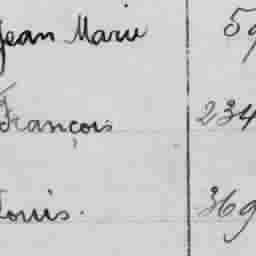 Jean Marie 59
François 234
Louis. 369